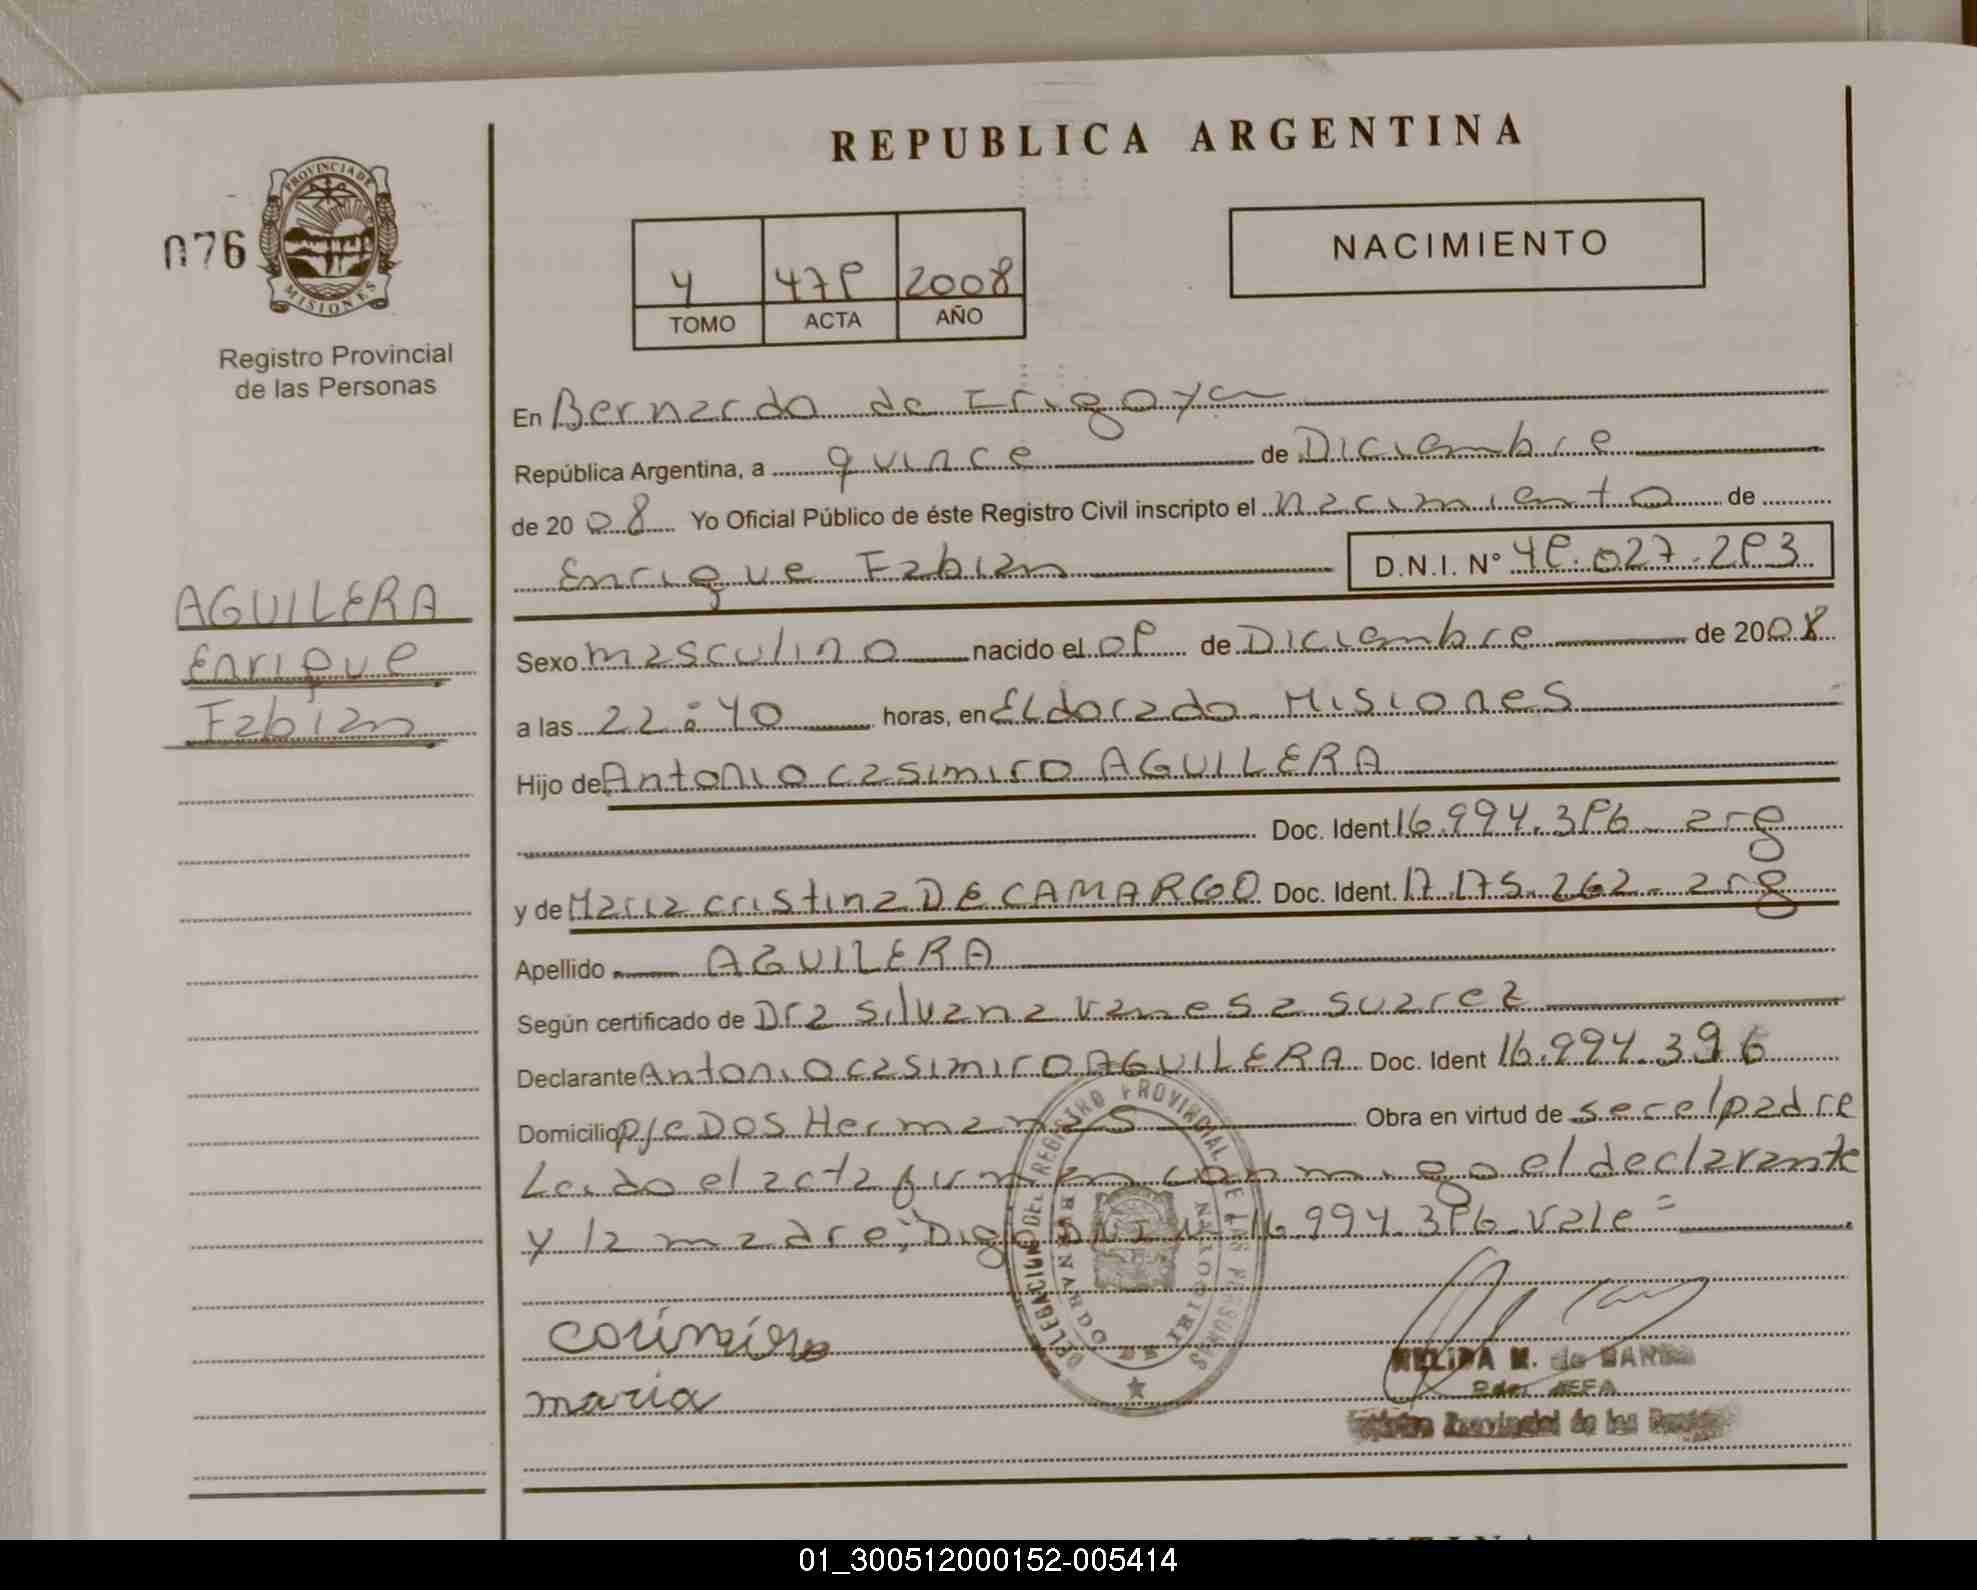 REPUBLICA ARGENTINA
076
PROVINCIA DE MISIONES
Registro Provincial
de las Personas
NACIMIENTO
4 479 2008
TOMO ACTA AÑO
En Bernardo de Irigoyen
República Argentina, a quince de Diciembre
de 2008 Yo Oficial Público de éste Registro Civil inscripto el nacimiento de
Enrique Fabian D.N.I. N° 49.027.293
AGUILERA
Enrique
Fabian
Sexo masculino nacido el 09 de Diciembre de 2008
a las 22:40 horas, en Eldorado Misiones
Hijo de Antonio casimiro AGUILERA
Doc. Ident 16.994.396 arg
y de Maria cristina DE CAMARGO Doc. Ident. 17.175.262- arg
Apellido AGUILERA
Según certificado de Dra silvana vanesa suarez
Declarante Antonio casimiro AGUILERA Doc. Ident 16.994.396
Domicilio pje DOS Hermanas Obra en virtud de ser el padre
Leido el acta firman conmigo el declarante
y la madre; "Digo DNI N° 16.994.396 vale =
DELEGACION DEL REGISTRO PROVINCIAL DE LAS PERSONAS
BERNARDO DE IRIGOYEN
maria
NELIDA M. de
JEFA
Registro Provincial de las Personas
01_300512000152-005414